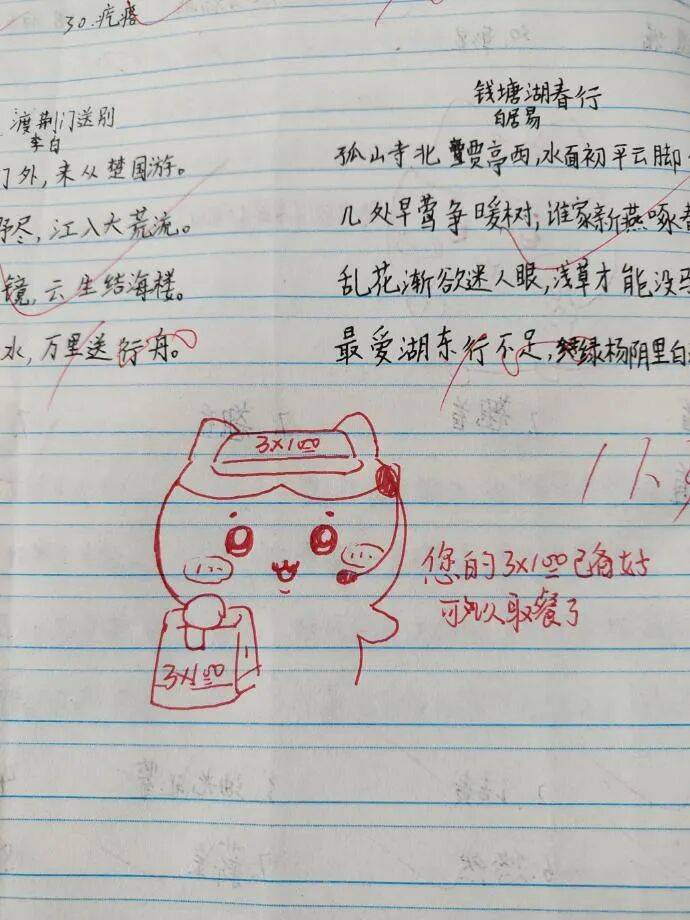 30.疙瘩
渡荆门送别
李白
门外,来从楚国游。
野尽,江入大荒流。
镜,云生结海楼。
水,万里送行舟。
钱塘湖春行
白居易
孤山寺北贾亭西,水面初平云脚
几处早莺争暖树,谁家新燕啄春
乱花渐欲迷人眼,浅草才能没马
最爱湖东行不足,绿杨阴里白
3×100
您的3×100已备好
可以取餐了
3×100